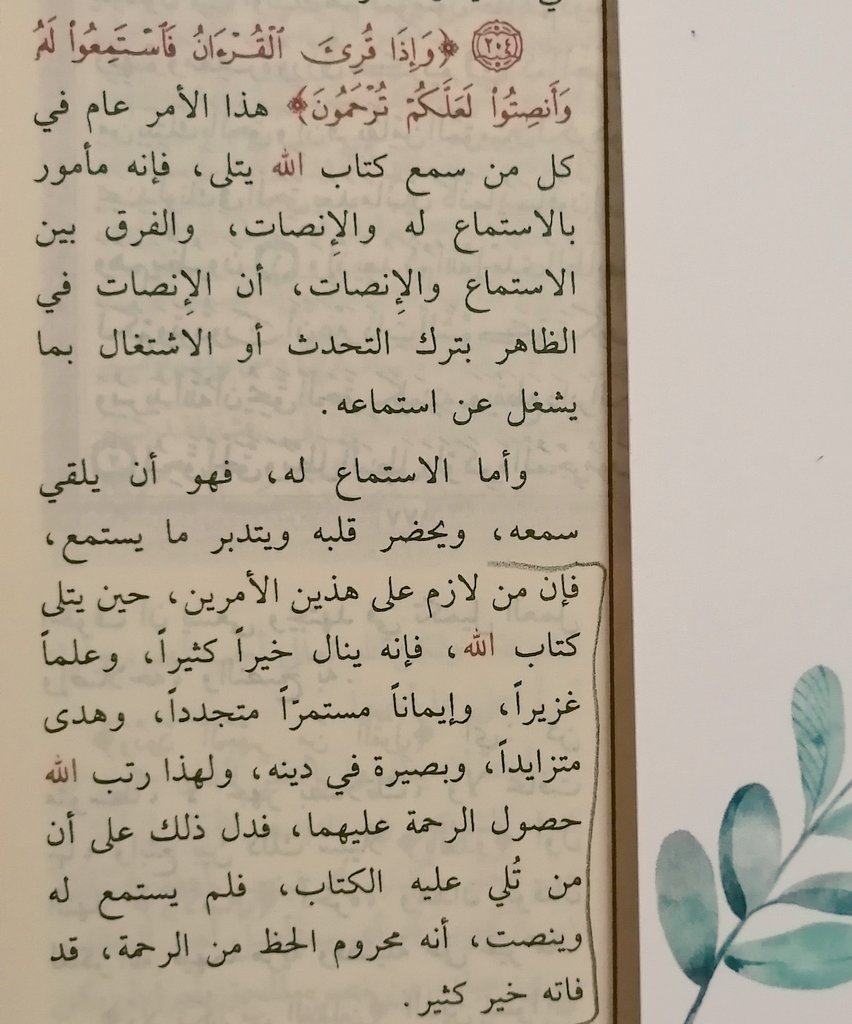 ﴿٢٠٤﴾ ﴿وَإِذَا قُرِئَ ٱلْقُرْءَانُ فَٱسْتَمِعُوا۟ لَهُۥ
وَأَنصِتُوا۟ لَعَلَّكُمْ تُرْحَمُونَ﴾ هذا الأمر عام في
كل من سمع كتاب الله يتلى، فإنه مأمور
بالاستماع له والإِنصات، والفرق بين
الاستماع والإِنصات، أن الإِنصات في
الظاهر بترك التحدث أو الاشتغال بما
يشغل عن استماعه.
وأما الاستماع له، فهو أن يلقي
سمعه، ويحضر قلبه ويتدبر ما يستمع،
فإن من لازم على هذين الأمرين، حين يتلى
كتاب الله، فإنه ينال خيراً كثيراً، وعلماً
غزيراً، وإيماناً مستمرّاً متجدداً، وهدى
متزايداً، وبصيرة في دينه، ولهذا رتب الله
حصول الرحمة عليهما، فدل ذلك على أن
من تُلي عليه الكتاب، فلم يستمع له
وينصت، أنه محروم الحظ من الرحمة، قد
فاته خير كثير.